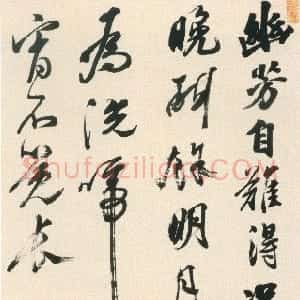 幽芳自難得
晚
明月
為洗啼
宵不覺長
Shufaziliao.COM